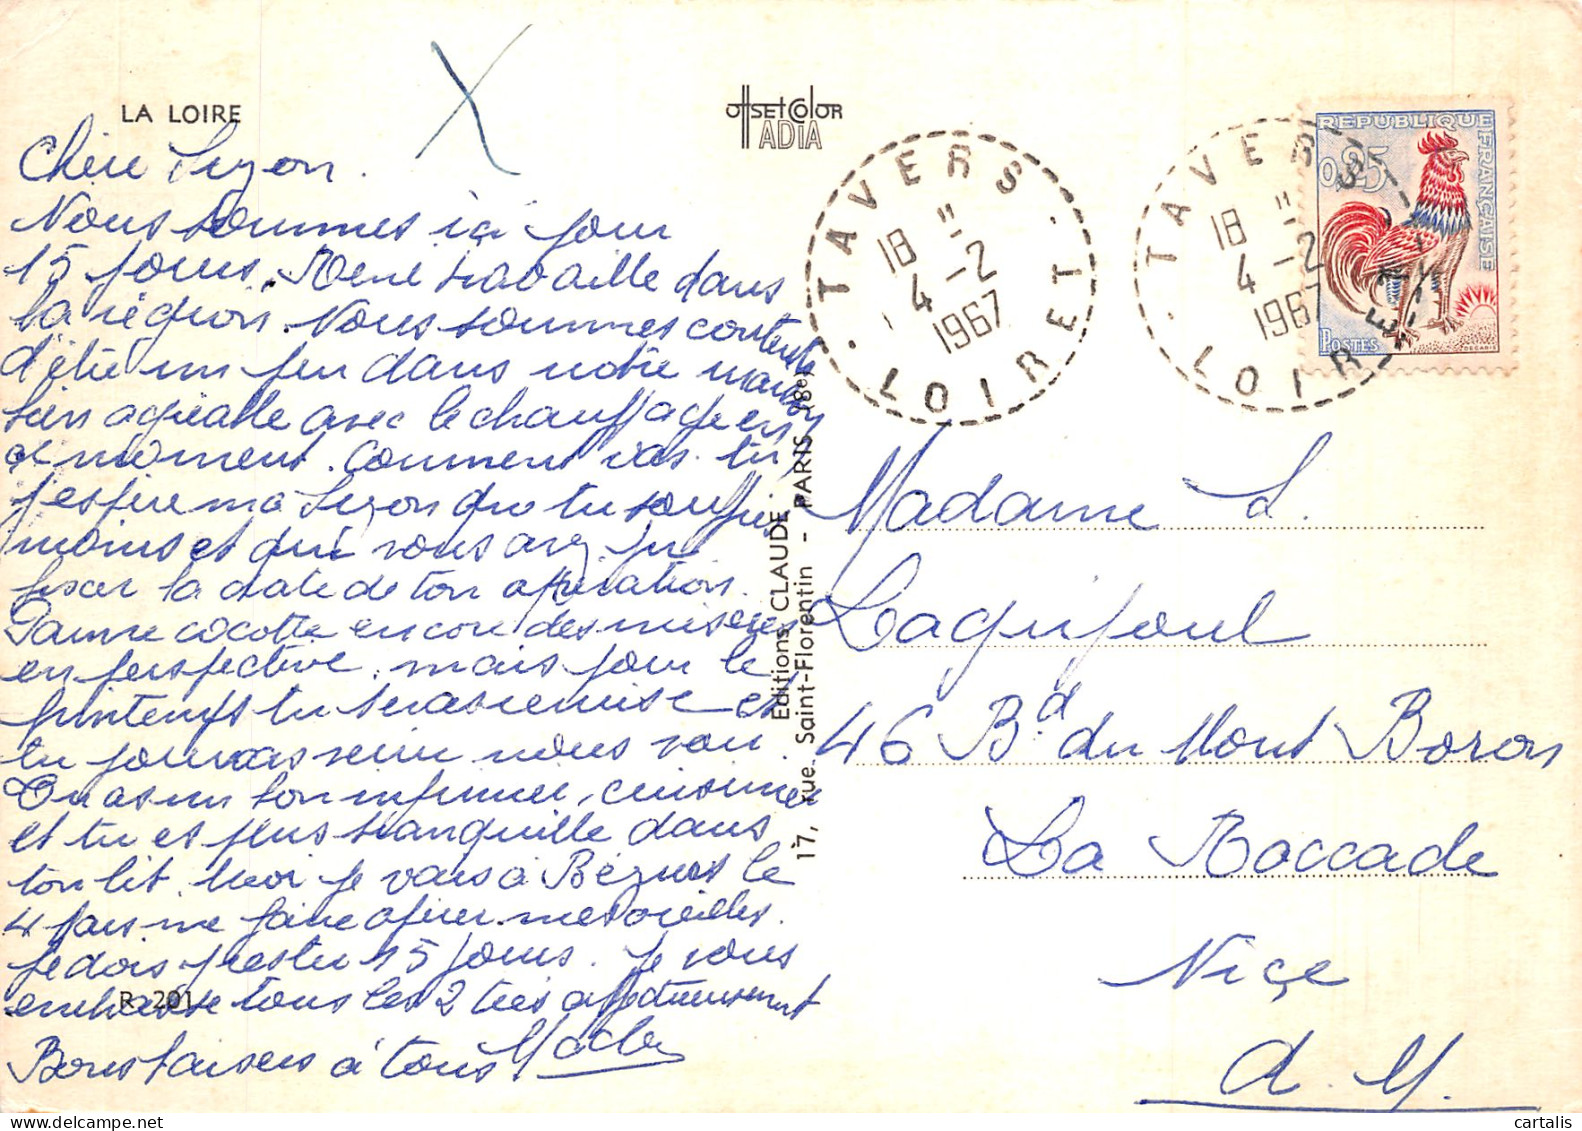 LA LOIRE
offsetcolor
ADIA
Chère Suzon.
Nous sommes ici pour
15 jours. René travaille dans
la région. Nous sommes contents
d'être un peu dans notre maison
bien agréable avec le chauffage en
ce moment. Comment vas-tu
j'espère ma Suzon que tu souffres
moins et que vous avez pu
fixer la date de ton opération.
Pauvre cocotte encore des misères
en perspective. mais pour le
printemps tu seras remise et
tu pourras venir nous voir.
On as un bon infirmier, cuisinier
et tu es plus tranquille dans
ton lit. Moi je vais à le
4 faire opérer mes oreilles.
Je dois rester 15 jours. Je vous
embrasse tous les 2 très affectueusement
Bons baisers à tous
R. 201
Editions CLAUDE
17, rue Saint-Florentin - PARIS (8e)
TAVERS
18 H
4 -2
1967
LOIRET
TAVERS
18 H
4 -2
1967
LOIRET
REPUBLIQUE FRANÇAISE
0,25
POSTES
DECARIS
Madame L.
Laquifoul
46 Bd du Mont Boron
La Roccade
Niçe
A. M.
cartalis